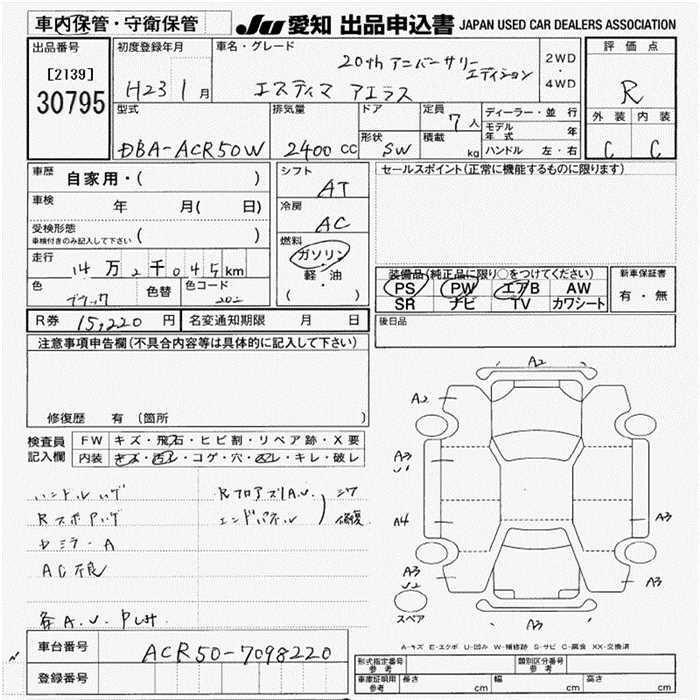 車内保管・守衛保管
JU 愛知 出品申込書 JAPAN USED CAR DEALERS ASSOCIATION
出品番号
[2139]
30795
初度登録年月
H23 1 月
車名・グレード
20th アニバーサリーエディション
エスティマ アエラス
2WD
・
4WD
評価点
R
外装 内装
C C
型式
DBA-ACR50W
排気量
2400 CC
ドア
形状
SW
定員
7 人
積載
kg
ディーラー・並行
モデル年式 年
ハンドル 左・右
車歴 自家用・( )
車検 年 月( 日)
受検形態
車検付きのみ記入して下さい ( )
走行
14万2千045km
色
ブラック
色替
色コード
202
シフト
AT
冷房
AC
燃料
ガソリン
・
軽・油
( )
セールスポイント(正常に機能するものに限ります)
装備品(純正品に限り○をつけてください)
PS PW エアB AW
SR ナビ TV カワシート
新車保証書
有・無
R券 15,220 円 名変通知期限 月 日
後日品
注意事項申告欄(不具合内容等は具体的に記入して下さい)
修復歴 有 (箇所 )
検査員記入欄
FW キズ・飛石・ヒビ割・リペア跡・X要
内装 キズ・汚レ・コゲ・穴・スレ・キレ・破レ
ハンドルハゲ
Rスポアハゲ
ミラーA
AC不良
各A.U.P
RフロアズレA.U.
エンドパネル
修復
A2
A2
A3
U1
A4
A3
A3
U2
A3
A3
スペア
A-キズ E-エクボ U-凹み W-補修跡 S-サビ C-腐食 XX-交換済
車台番号 ACR50-7098220
登録番号
形式指定番号 参考
類別区分番号 参考
車庫証明用 参考
長さ cm
幅 cm
高さ cm